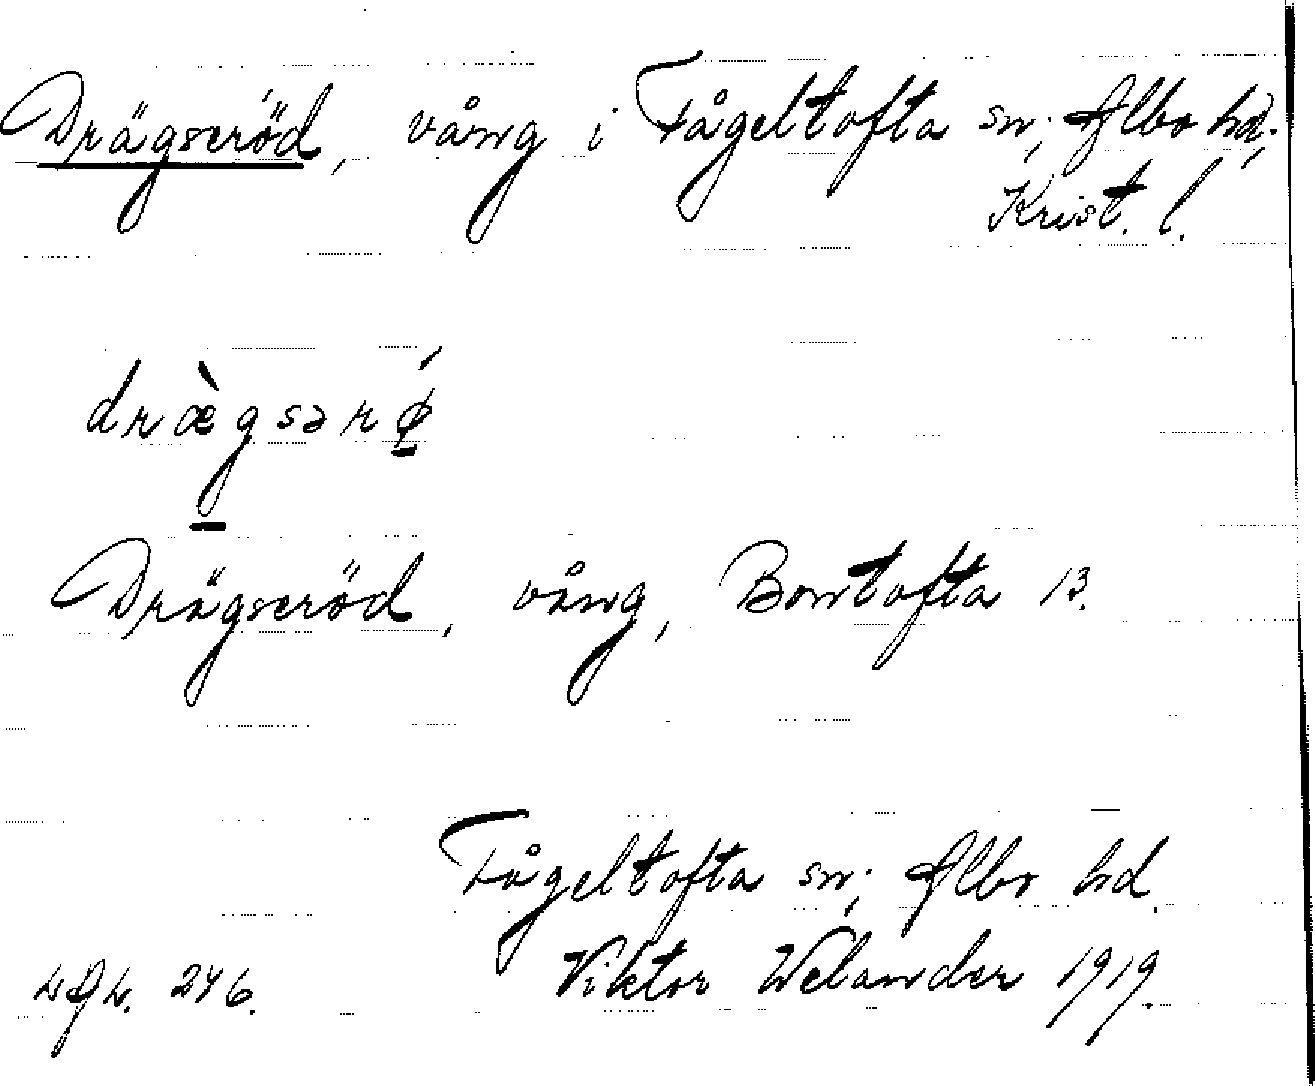 Drägseröd, vång i Fågeltofta sn; Albo hd.
Krist. l.
dræ̀gsərǿ
Drägseröd, vång, Bontofta 13.
Fågeltofta sn; Albo hd.
246. Viktor Welander 1919.